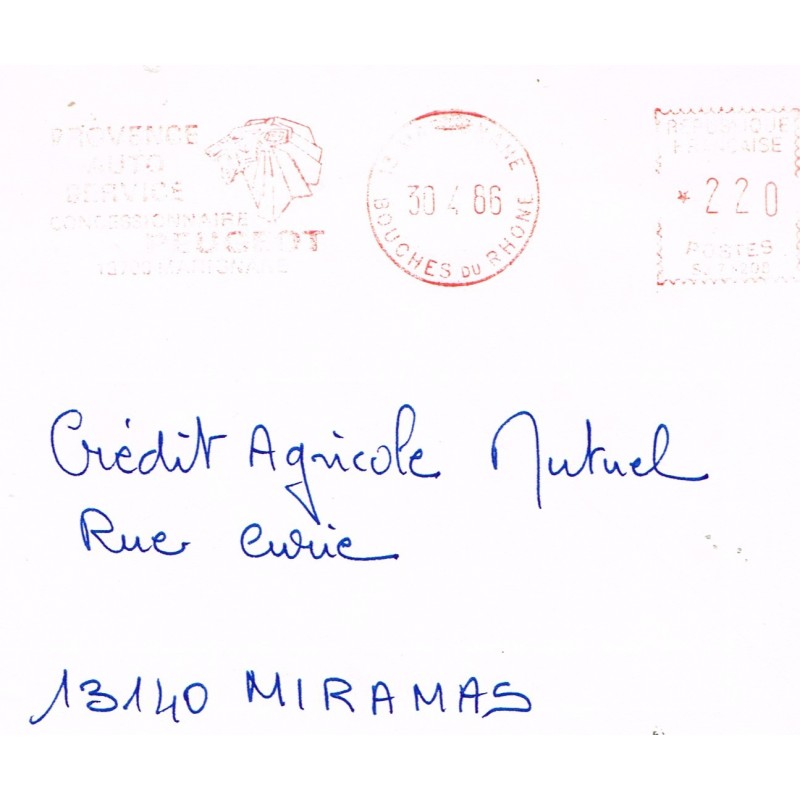 PROVENCE
AUTO
SERVICE
CONCESSIONNAIRE
PEUGEOT
13700 MARIGNANE
BOUCHES DU RHONE
30 4 86
REPUBLIQUE
FRANCAISE
* 220
POSTES
Crédit Agricole Mutuel
Rue Curie
13140 MIRAMAS